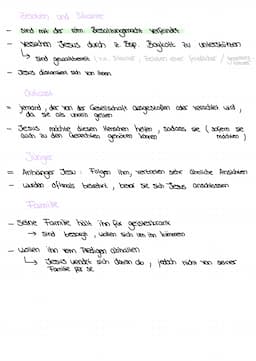 Zeloten und Sikarier
— sind mit der röm. Besatzungsmacht verfeindet
— versuchen Jesus durch z. Bsp. Boykott zu unterstützen
↳ sind gewaltbereit
— Jesus distanziert sich von ihnen
Outcast
= jemand, der von der Gesellschaft ausgestoßen oder verachtet wird, da sie als unrein gelten
— Jesus möchte diesen Menschen helfen, sodass sie (sofern sie möchten)
auch zu den Gerechten gehören können
Jünger
= Anhänger Jesu: Folgen ihm, vertreten sehr ähnliche Ansichten
— wurden oftmals bekehrt, bevor sie sich Jesus anschlossen
Familie
— Seine Familie hält ihn für geisteskrank
→ sind besorgt, wollen sich um ihn kümmern
— wollen ihn vom Predigen abhalten
↳ Jesus wendet sich davon ab, jedoch nicht von seiner
Familie per se